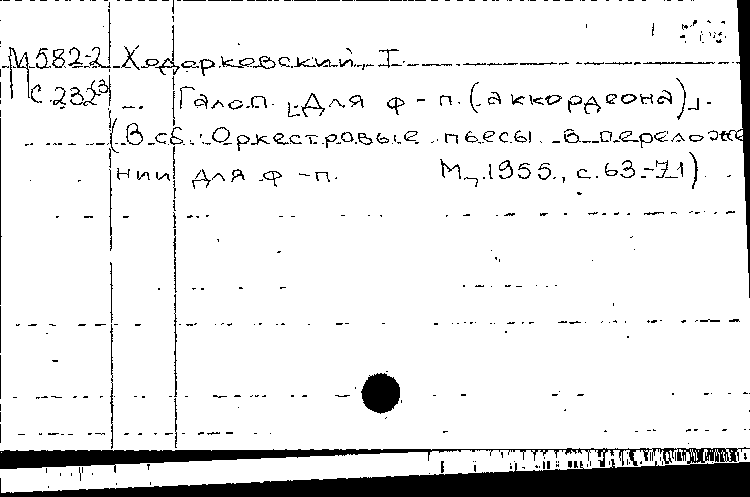 М582-2 Ходорковский, І.
С 232 Галоп. [Для ф-п. (аккордеона)].
(В сб.: Оркестровые пьесы в переложе
нии для ф-п. М., 1955, с. 63-71)